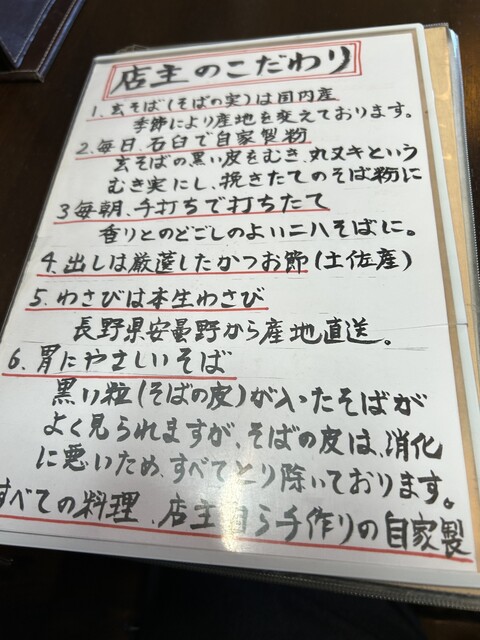 店主のこだわり
1. 玄そば(そばの実)は国内産
季節により産地を変えております。
2. 毎日、石臼で自家製粉
玄そばの黒い皮をむき、丸ヌキという
むき実にし、挽きたてのそば粉に
3 毎朝、手打ちで打ちたて
香りとのどごしのよい二八そばに。
4. 出しは厳選したかつお節(土佐産)
5. わさびは本生わさび
長野県安曇野から産地直送。
6. 胃にやさしいそば
黒い粒(そばの皮)が入ったそばが
よく見られますが、そばの皮は、消化
に悪いため、すべてとり除いております。
すべての料理、店主自ら手作りの自家製